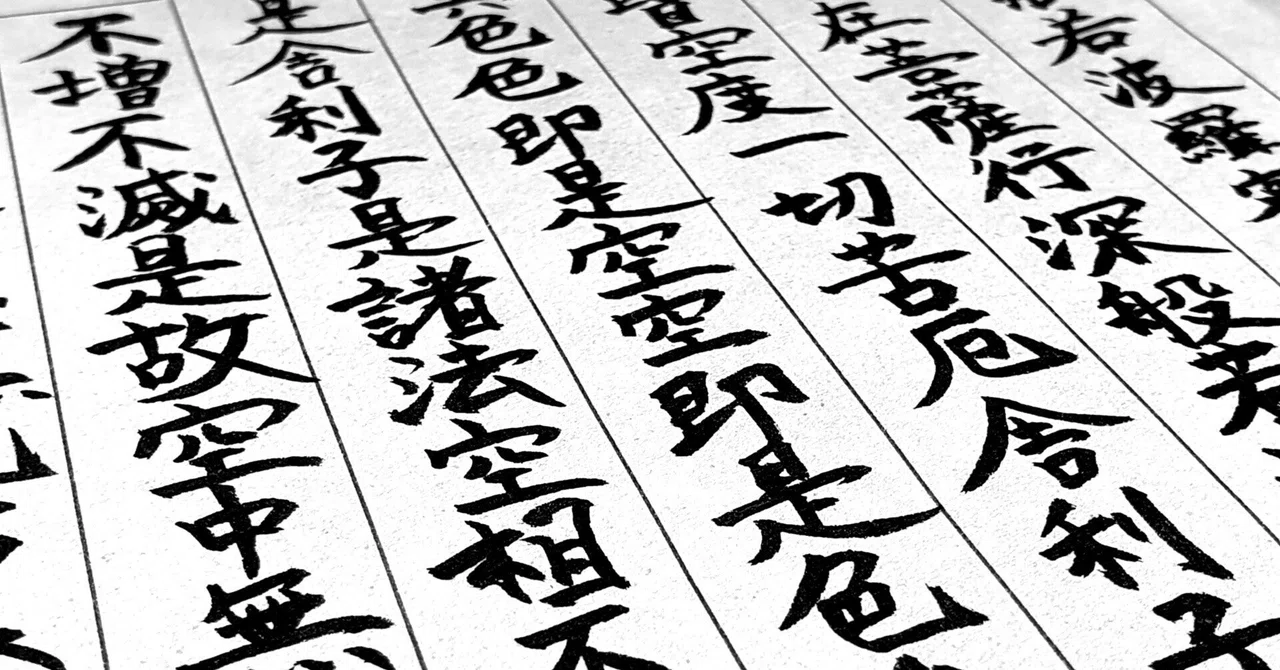 若波羅
在菩薩行深般若
皆空度一切苦厄舍利子
色色即是空空即是色
是舍利子是諸法空相不
不増不滅是故空中無